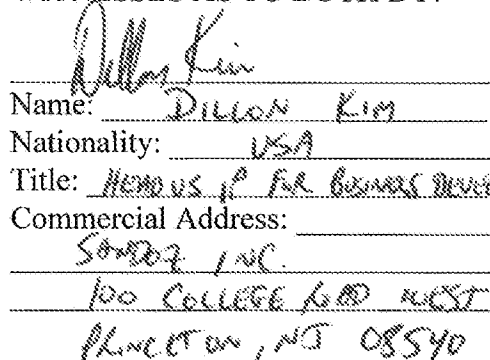 Dillon Kim
Name: DILLON KIM
Nationality: USA
Title: HEAD US IP FOR BUSINESS DEVE
Commercial Address:
SANDOZ INC.
100 COLLEGE ROAD WEST
PRINCETON, NJ 08540